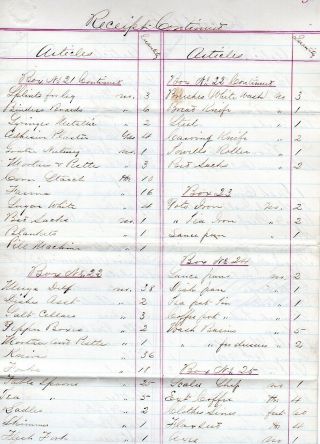 Receipt Continued
Articles Quantity
Box No 21 Continued
Splints for leg no. 3
Binders Boards " 6
Syringes Metallic " 2
Adhesive Plaster Yds 4
Grater Nutmeg no. 1
Mortar & Pestle " 3
Corn Starch lbs 10
Farina " 16
Sugar White " 4
Bed Sacks no. 2
Blankets " 1
Pill Machine " 1
Box No 22
Mugs Delf no. 38
Dishes Asst " 2
Salt Cellars " 3
Pepper Boxes " 2
Mortar and Pestle " 1
Knives " 36
Forks " 18
Table Spoons " 25
Tea " " 5
Ladles " 2
Skimmer " 1
Flesh Fork " 1
Articles Quantity
Box No 22 Continued
Brushes White wash no 3
Bread Knife " 2
Steel " 1
Carving Knife " 2
Towels Roller " 1
Bed Sacks " 2
Box 23
Pots Iron no. 2
" Tea Iron " 2
Sauce pan " 1
Box No 24
Sauce pans no. 2
Dish pan " 1
Tea pot Tin " 1
Coffee pot " 1
Wash Basins " 5
" " for dressers " 2
Box No 25
Scales Shop no. 1
Ext Coffee lbs 4
Clothes Lines feet
Flaxseed lbs 4
no. 1